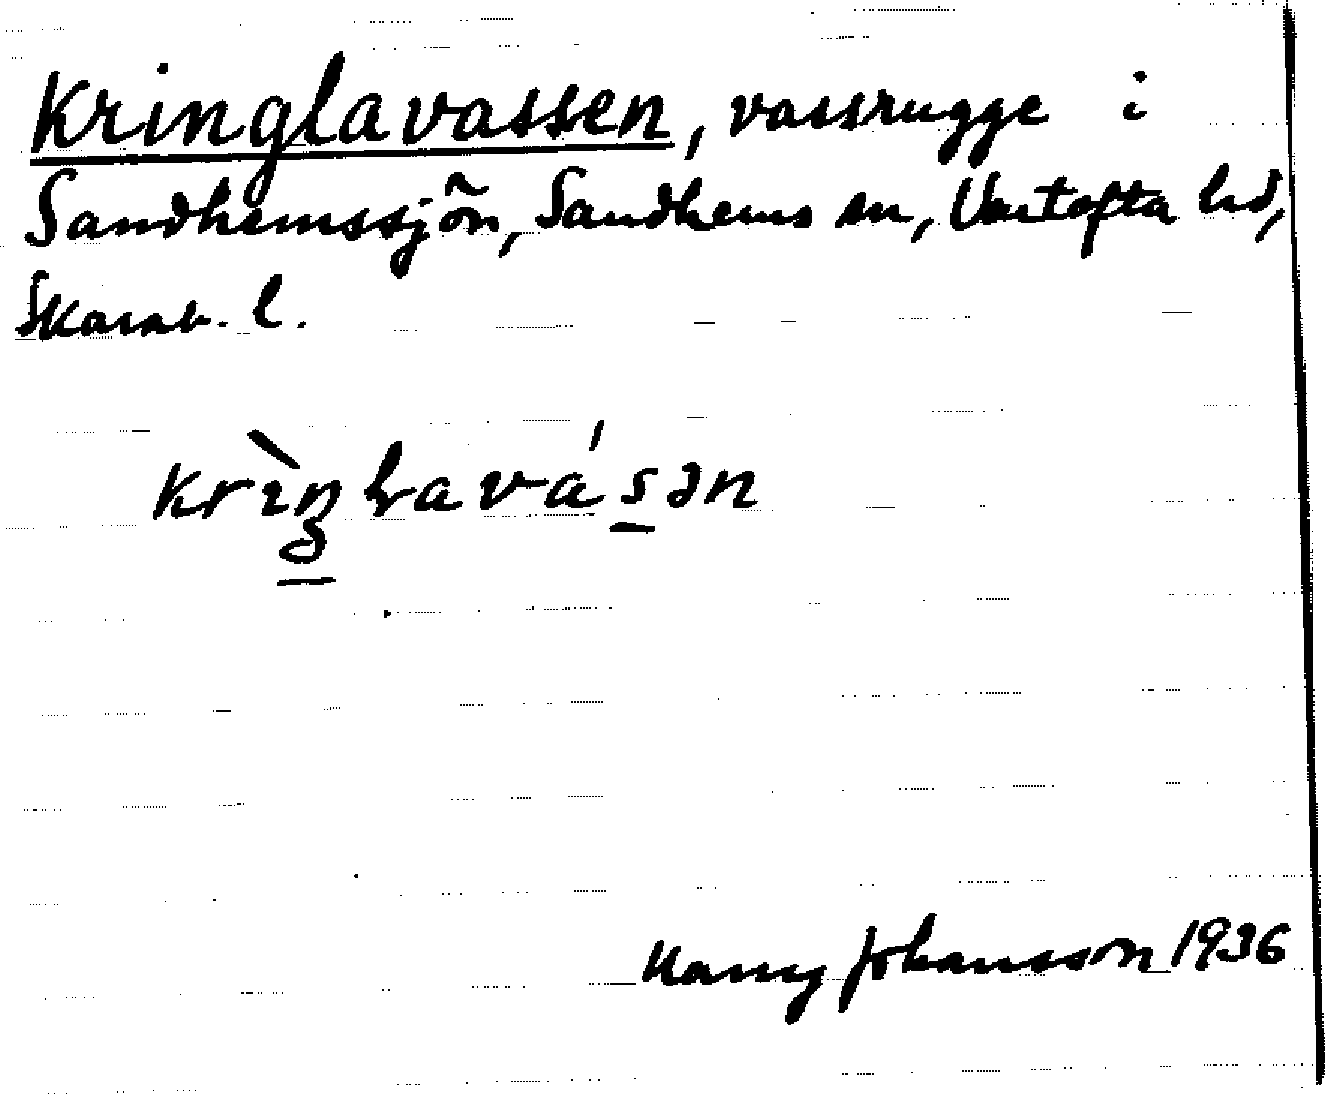 Kringlavassen, vassrugge i
Sandhemssjön, Sandhems sn, Vartofta hd,
Skarab. l.
krìŋlavásən
Harry Johansson 1936